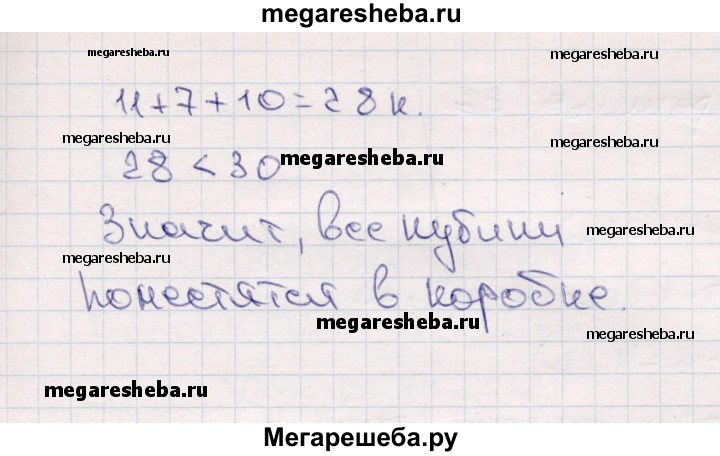 megaresheba.ru
megaresheba.ru
megaresheba.ru
11+7+10=28 к.
megaresheba.ru
28 < 30
megaresheba.ru
Значит, все кубики
megaresheba.ru
megaresheba.ru
поместятся в коробке.
megaresheba.ru
megaresheba.ru
megaresheba.ru
Мегарешеба.ру